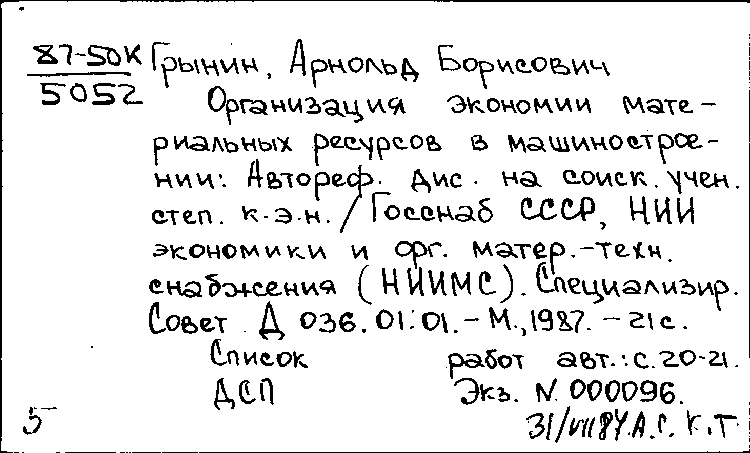 87-50К Грынин, Арнольд Борисович
5052 Организация экономии мате-
риальных ресурсов в машинострое-
нии: Автореф. дис. на соиск. учен.
степ. к.э.н. / Госснаб СССР, НИИ
экономики и орг. матер.-техн.
снабжения (НИИМС). Специализир.
Совет Д 036.01.01. - М., 1987. - 21 с.
Список работ авт.: с. 20-21.
ДСП Экз. N 000096.
5 31/VII 87 А.С. К.Т